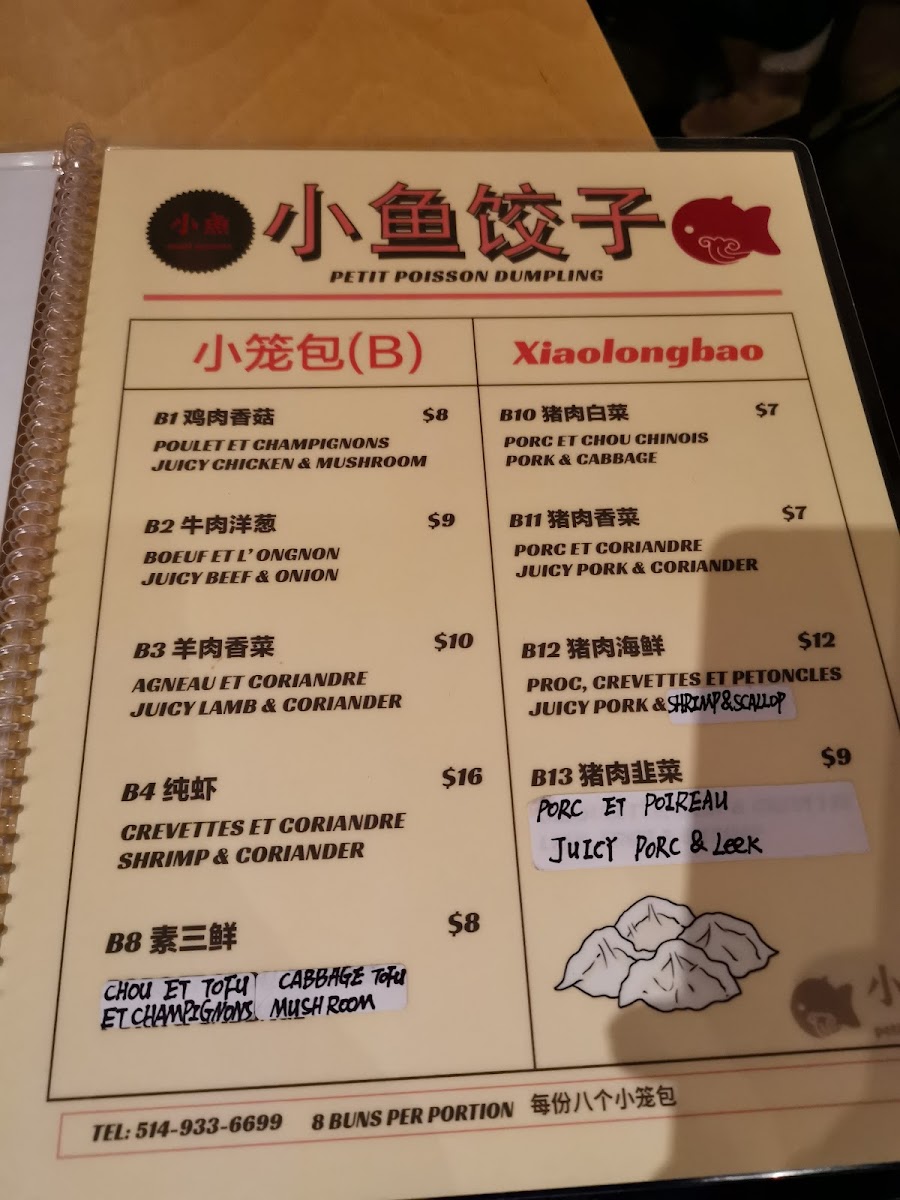 小魚
小鱼饺子
PETIT POISSON DUMPLING
小笼包(B)
Xiaolongbao
B1 鸡肉香菇 $8
POULET ET CHAMPIGNONS
JUICY CHICKEN & MUSHROOM
B2 牛肉洋葱 $9
BOEUF ET L' ONGNON
JUICY BEEF & ONION
B3 羊肉香菜 $10
AGNEAU ET CORIANDRE
JUICY LAMB & CORIANDER
B4 纯虾 $16
CREVETTES ET CORIANDRE
SHRIMP & CORIANDER
B8 素三鲜 $8
CHOU ET TOFU
ET CHAMPIGNONS
CABBAGE TOFU
MUSHROOM
B10 猪肉白菜 $7
PORC ET CHOU CHINOIS
PORK & CABBAGE
B11 猪肉香菜 $7
PORC ET CORIANDRE
JUICY PORK & CORIANDER
B12 猪肉海鲜 $12
PROC, CREVETTES ET PETONCLES
JUICY PORK & SHRIMP & SCALLOP
B13 猪肉韭菜 $9
PORC ET POIREAU
JUICY PORC & LeeK
小
TEL: 514-933-6699 8 BUNS PER PORTION 每份八个小笼包